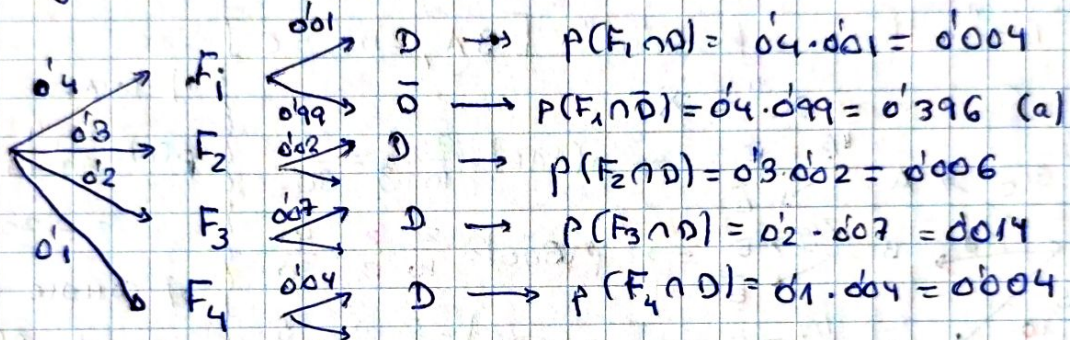 0'01 D → P(F₁∩D) = 0'4·0'01 = 0'004
0'4 F₁
0'99 D̄ → P(F₁∩D̄) = 0'4·0'99 = 0'396 (a)
0'3 F₂ 0'02 D → P(F₂∩D) = 0'3·0'02 = 0'006
0'2 F₃ 0'07 D → P(F₃∩D) = 0'2·0'07 = 0'014
0'1 F₄ 0'04 D → P(F₄∩D) = 0'1·0'04 = 0'004